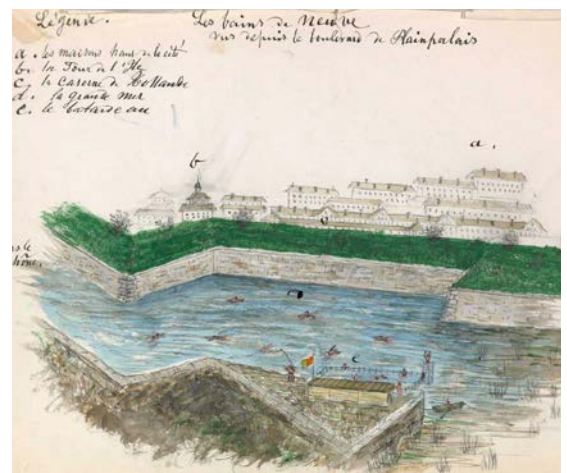 Légende.
Les bains de neuve
vus depuis le boulevard de Plainpalais
a. les maisons haut de la cité
b. la Tour de l'Ile
c. la Caserne de Hollande
d. la grande mer
e. le batardeau
a.
b
c
c